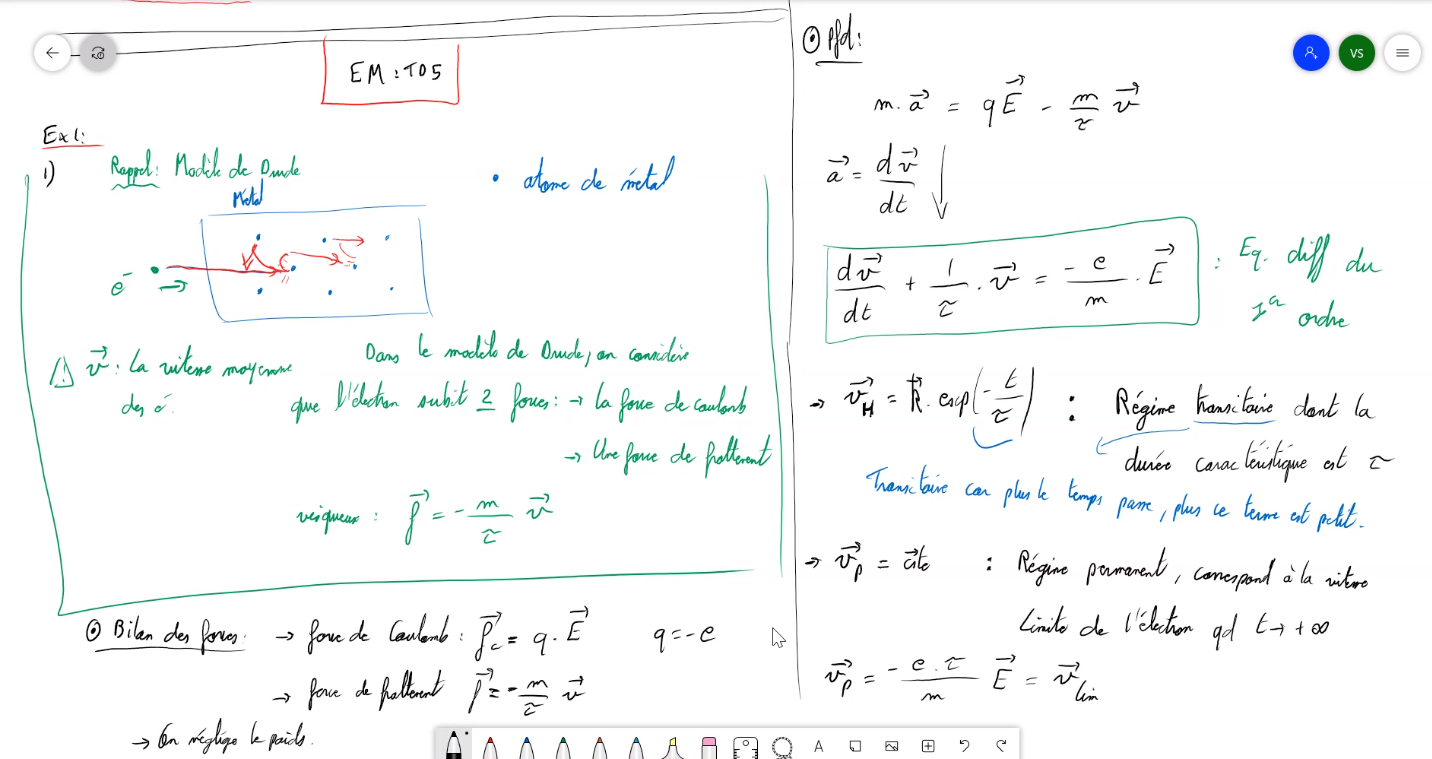 EM : TD5
Ex1:
1)
Rappel: Modèle de Drude
Métal
• atome de métal
e⁻
⚠ v⃗ : La vitesse moyenne
des é.
Dans le modèle de Drude, on considère
que l'électron subit 2 forces : → La force de Coulomb
→ Une force de frottement
visqueux : f⃗ = - m/τ v⃗
⊙ Bilan des forces: → force de Coulomb : f⃗c = q . E⃗ q = - e
→ force de frottement f⃗ = - m/τ v⃗
→ On néglige le poids.
⊙ Pfd :
m. a⃗ = q E⃗ - m/τ v⃗
a⃗ = dv⃗/dt ↓
dv⃗/dt + 1/τ . v⃗ = -e/m . E⃗ : Eq. diff du
1er ordre
→ v⃗H = k⃗ . exp(-t/τ) : Régime transitoire dont la
durée caractéristique est τ
Transitoire car plus le temps passe, plus ce terme est petit.
→ v⃗p = c⃗te : Régime permanent, correspond à la vitesse
Limite de l'électron qd t → + ∞
v⃗p = - e . τ/m E⃗ = v⃗lim
VS
A